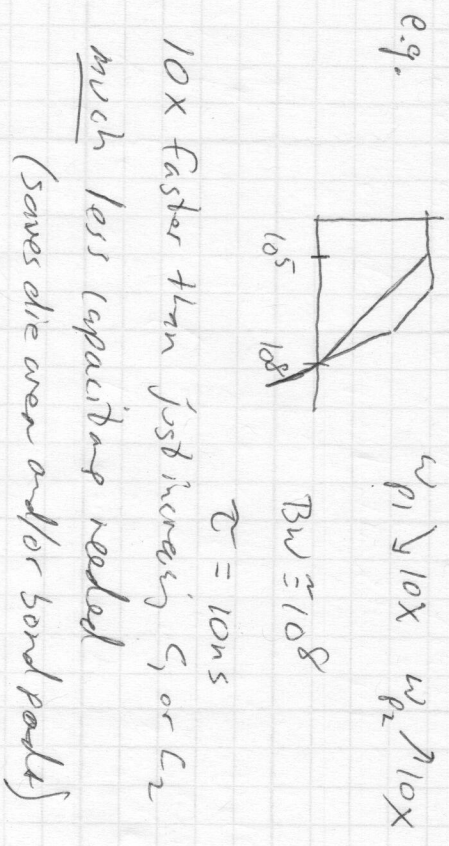 e.g. ω_p1 ↘ 10X ω_p2 ↗ 10X
10^5 10^8 BW ≅ 10^8
τ = 10ns
10X faster than just increasing C_1 or C_2
much less capacitance needed
(saves die area and/or bond pads)